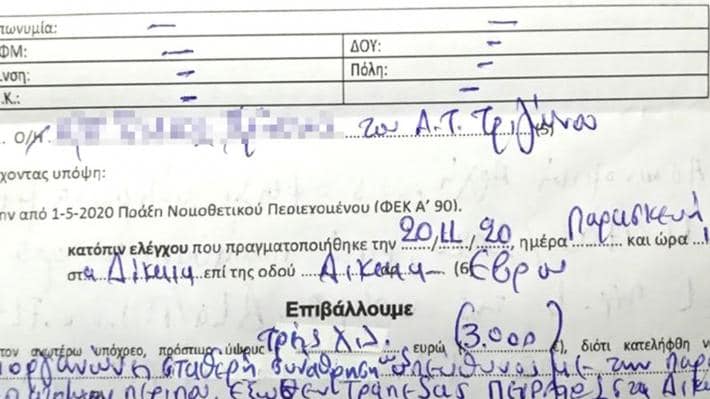 πωνυμία: —
ΦΜ: — ΔΟΥ: —
νση: — Πόλη: —
.Κ.: — —
. Ο/Η του Α.Τ. Τριγώνου (5)
χοντας υπόψη:
ην από 1-5-2020 Πράξη Νομοθετικού Περιεχομένου (ΦΕΚ Α' 90).
κατόπιν ελέγχου που πραγματοποιήθηκε την 20/11/20, ημέρα Παρασκευή και ώρα
στα Δίκαια επί της οδού Δίκαια (6) Έβρου
Επιβάλλουμε
τον ανωτέρω υπόχρεο, πρόστιμο ύψους τρής χιλ. ευρώ (3.000 €), διότι κατελήφθη ν
διοργάνωνη σταθερή συνάθρηση ως υπεύθυνος με την παρ
ατόμων περίπου έξωθεν Τράπεζας Πειραιώς στα Δίκαι